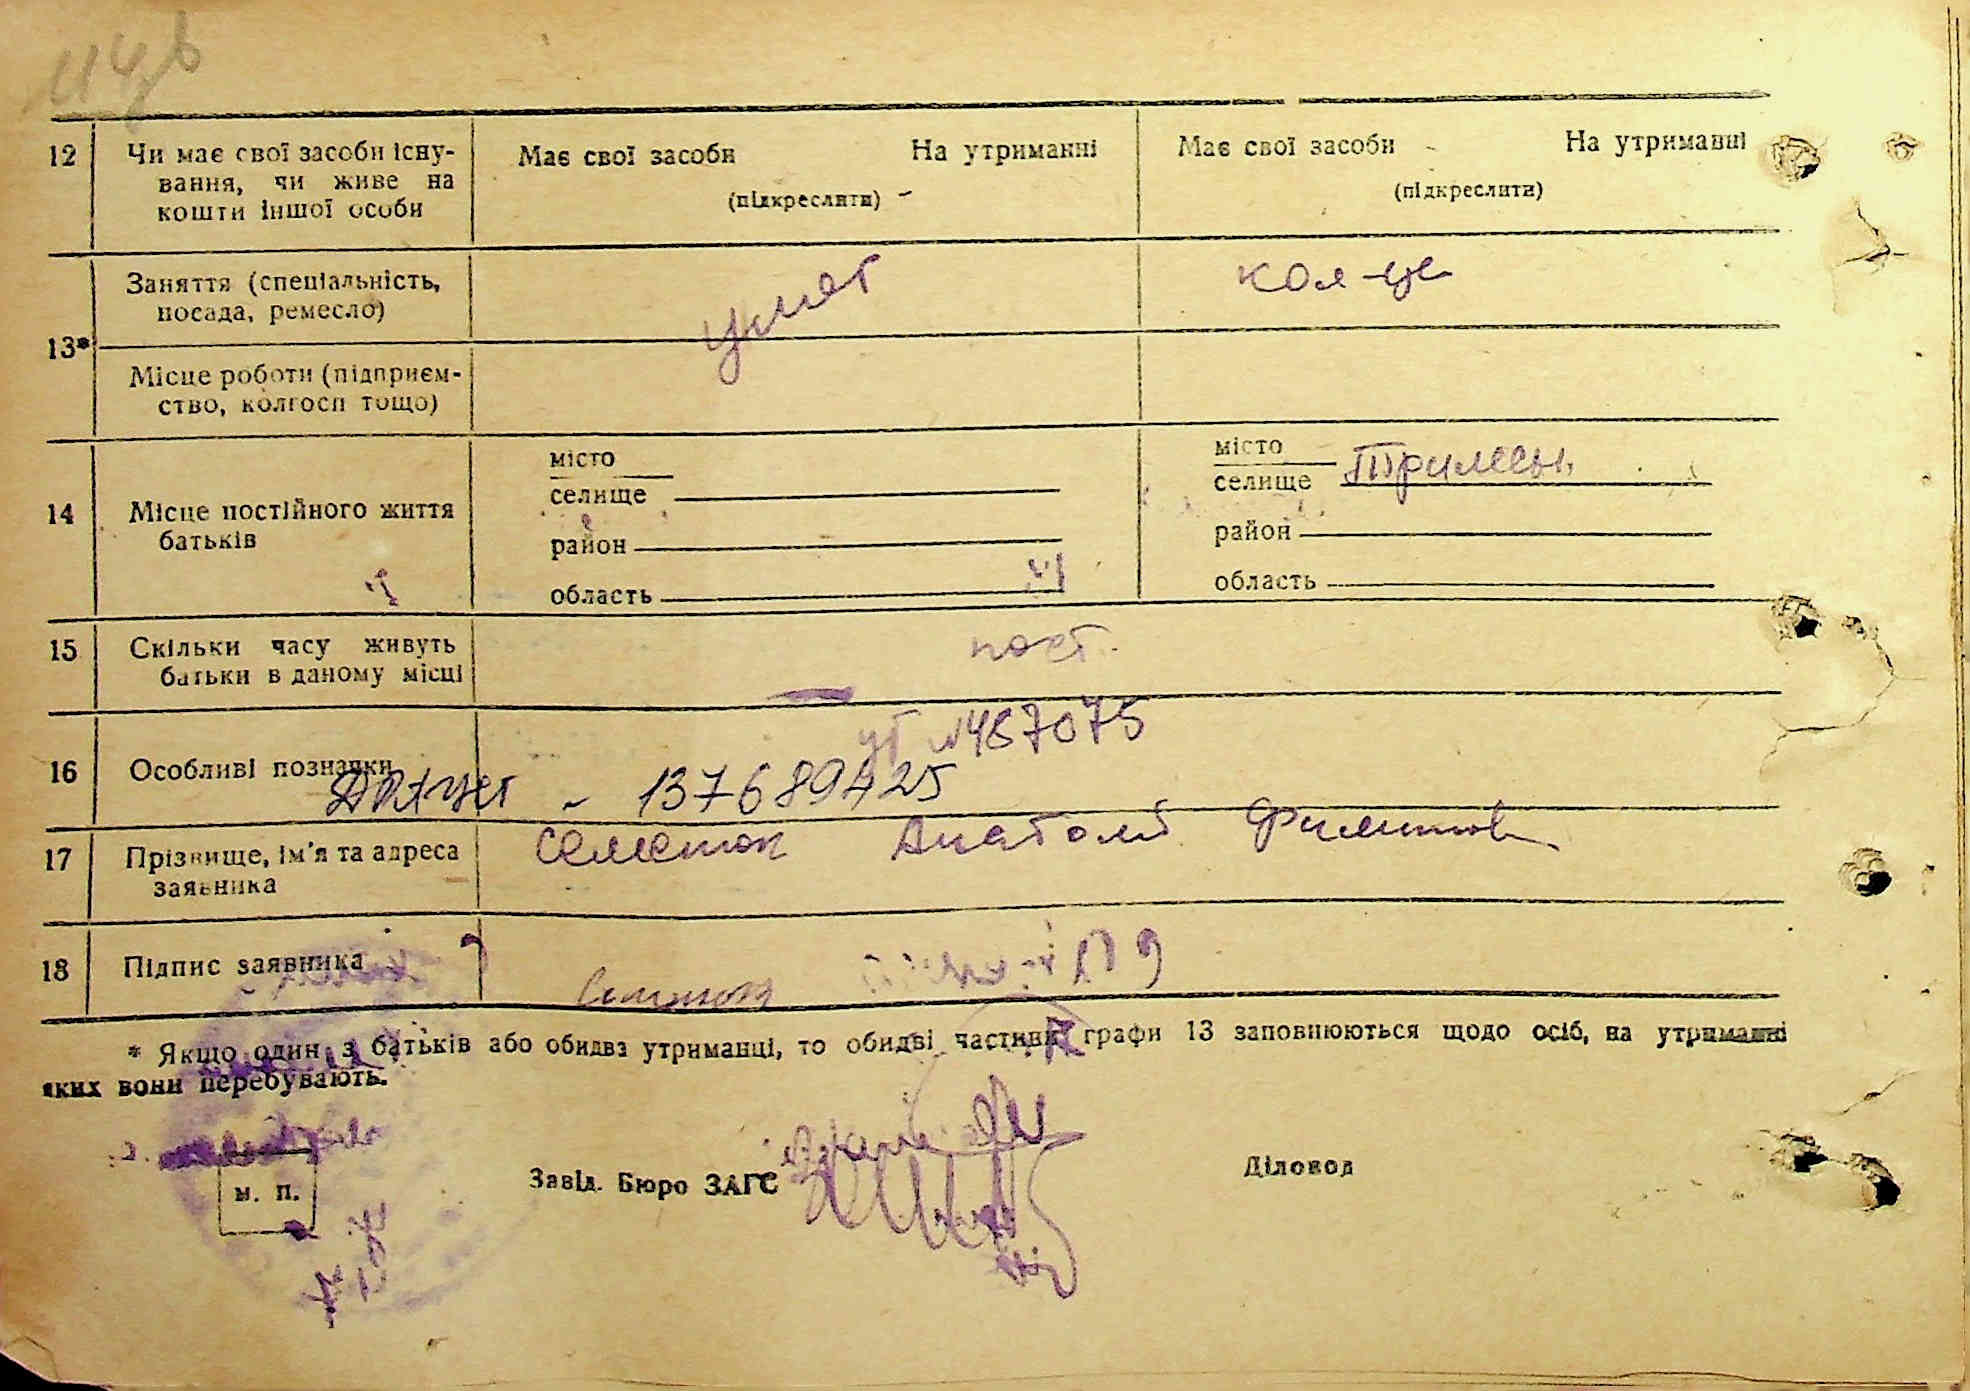 12 Чи має свої засоби існу-
вання, чи живе на
кошти іншої особи
Має свої засоби На утриманні
(підкреслити)
Має свої засоби На утриманні
(підкреслити)
13*
Заняття (спеціальність,
посада, ремесло)
кол-це
Місце роботи (підприєм-
ство, колгосп тощо)
14 Місце постійного життя
батьків
місто
селище
район
область
місто
селище Трилесы
район
область
15 Скільки часу живуть
батьки в даному місці
пост.
16 Особливі позначки
№ 487075
137689425
17 Прізвище, ім'я та адреса
заявника
Семенюк Анатолій
18 Підпис заявника
Семенюк
* Якщо один з батьків або обидва утриманці, то обидві частини графи 13 заповнюються щодо осіб, на утриманні
яких вони перебувають.
м. п.
Завід. Бюро ЗАГС
Діловод